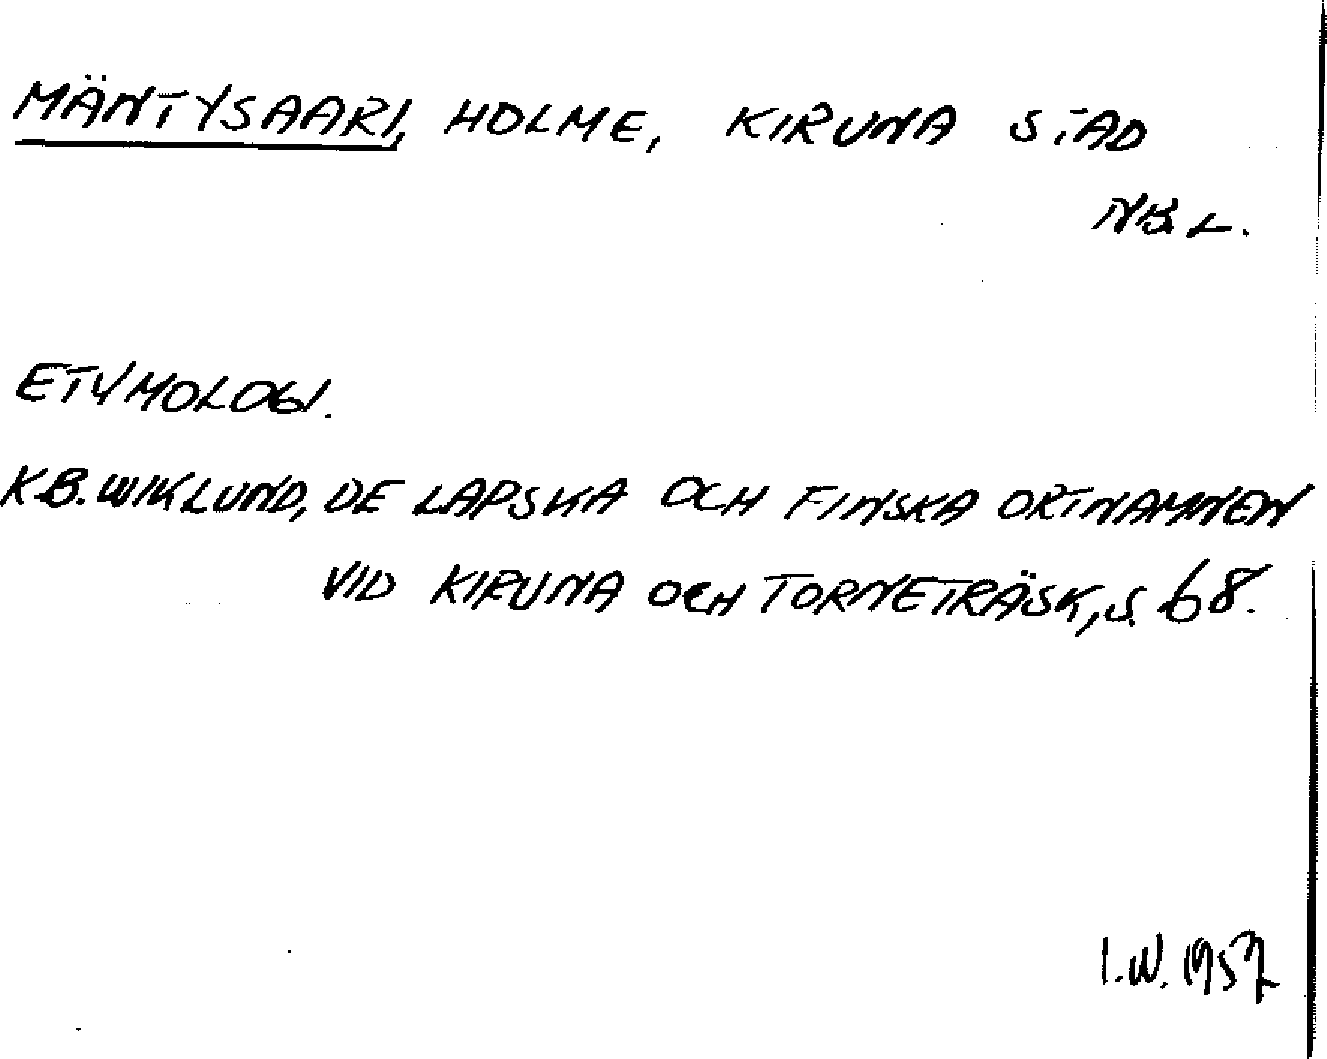 MÄNTYSAARI, HOLME, KIRUNA STAD
NB. L.
ETYMOLOGI.
K.B. WIKLUND, DE LAPSKA OCH FINSKA ORTNAMNEN
VID KIRUNA OCH TORNETRÄSK, S. 68.
I.W. 1957